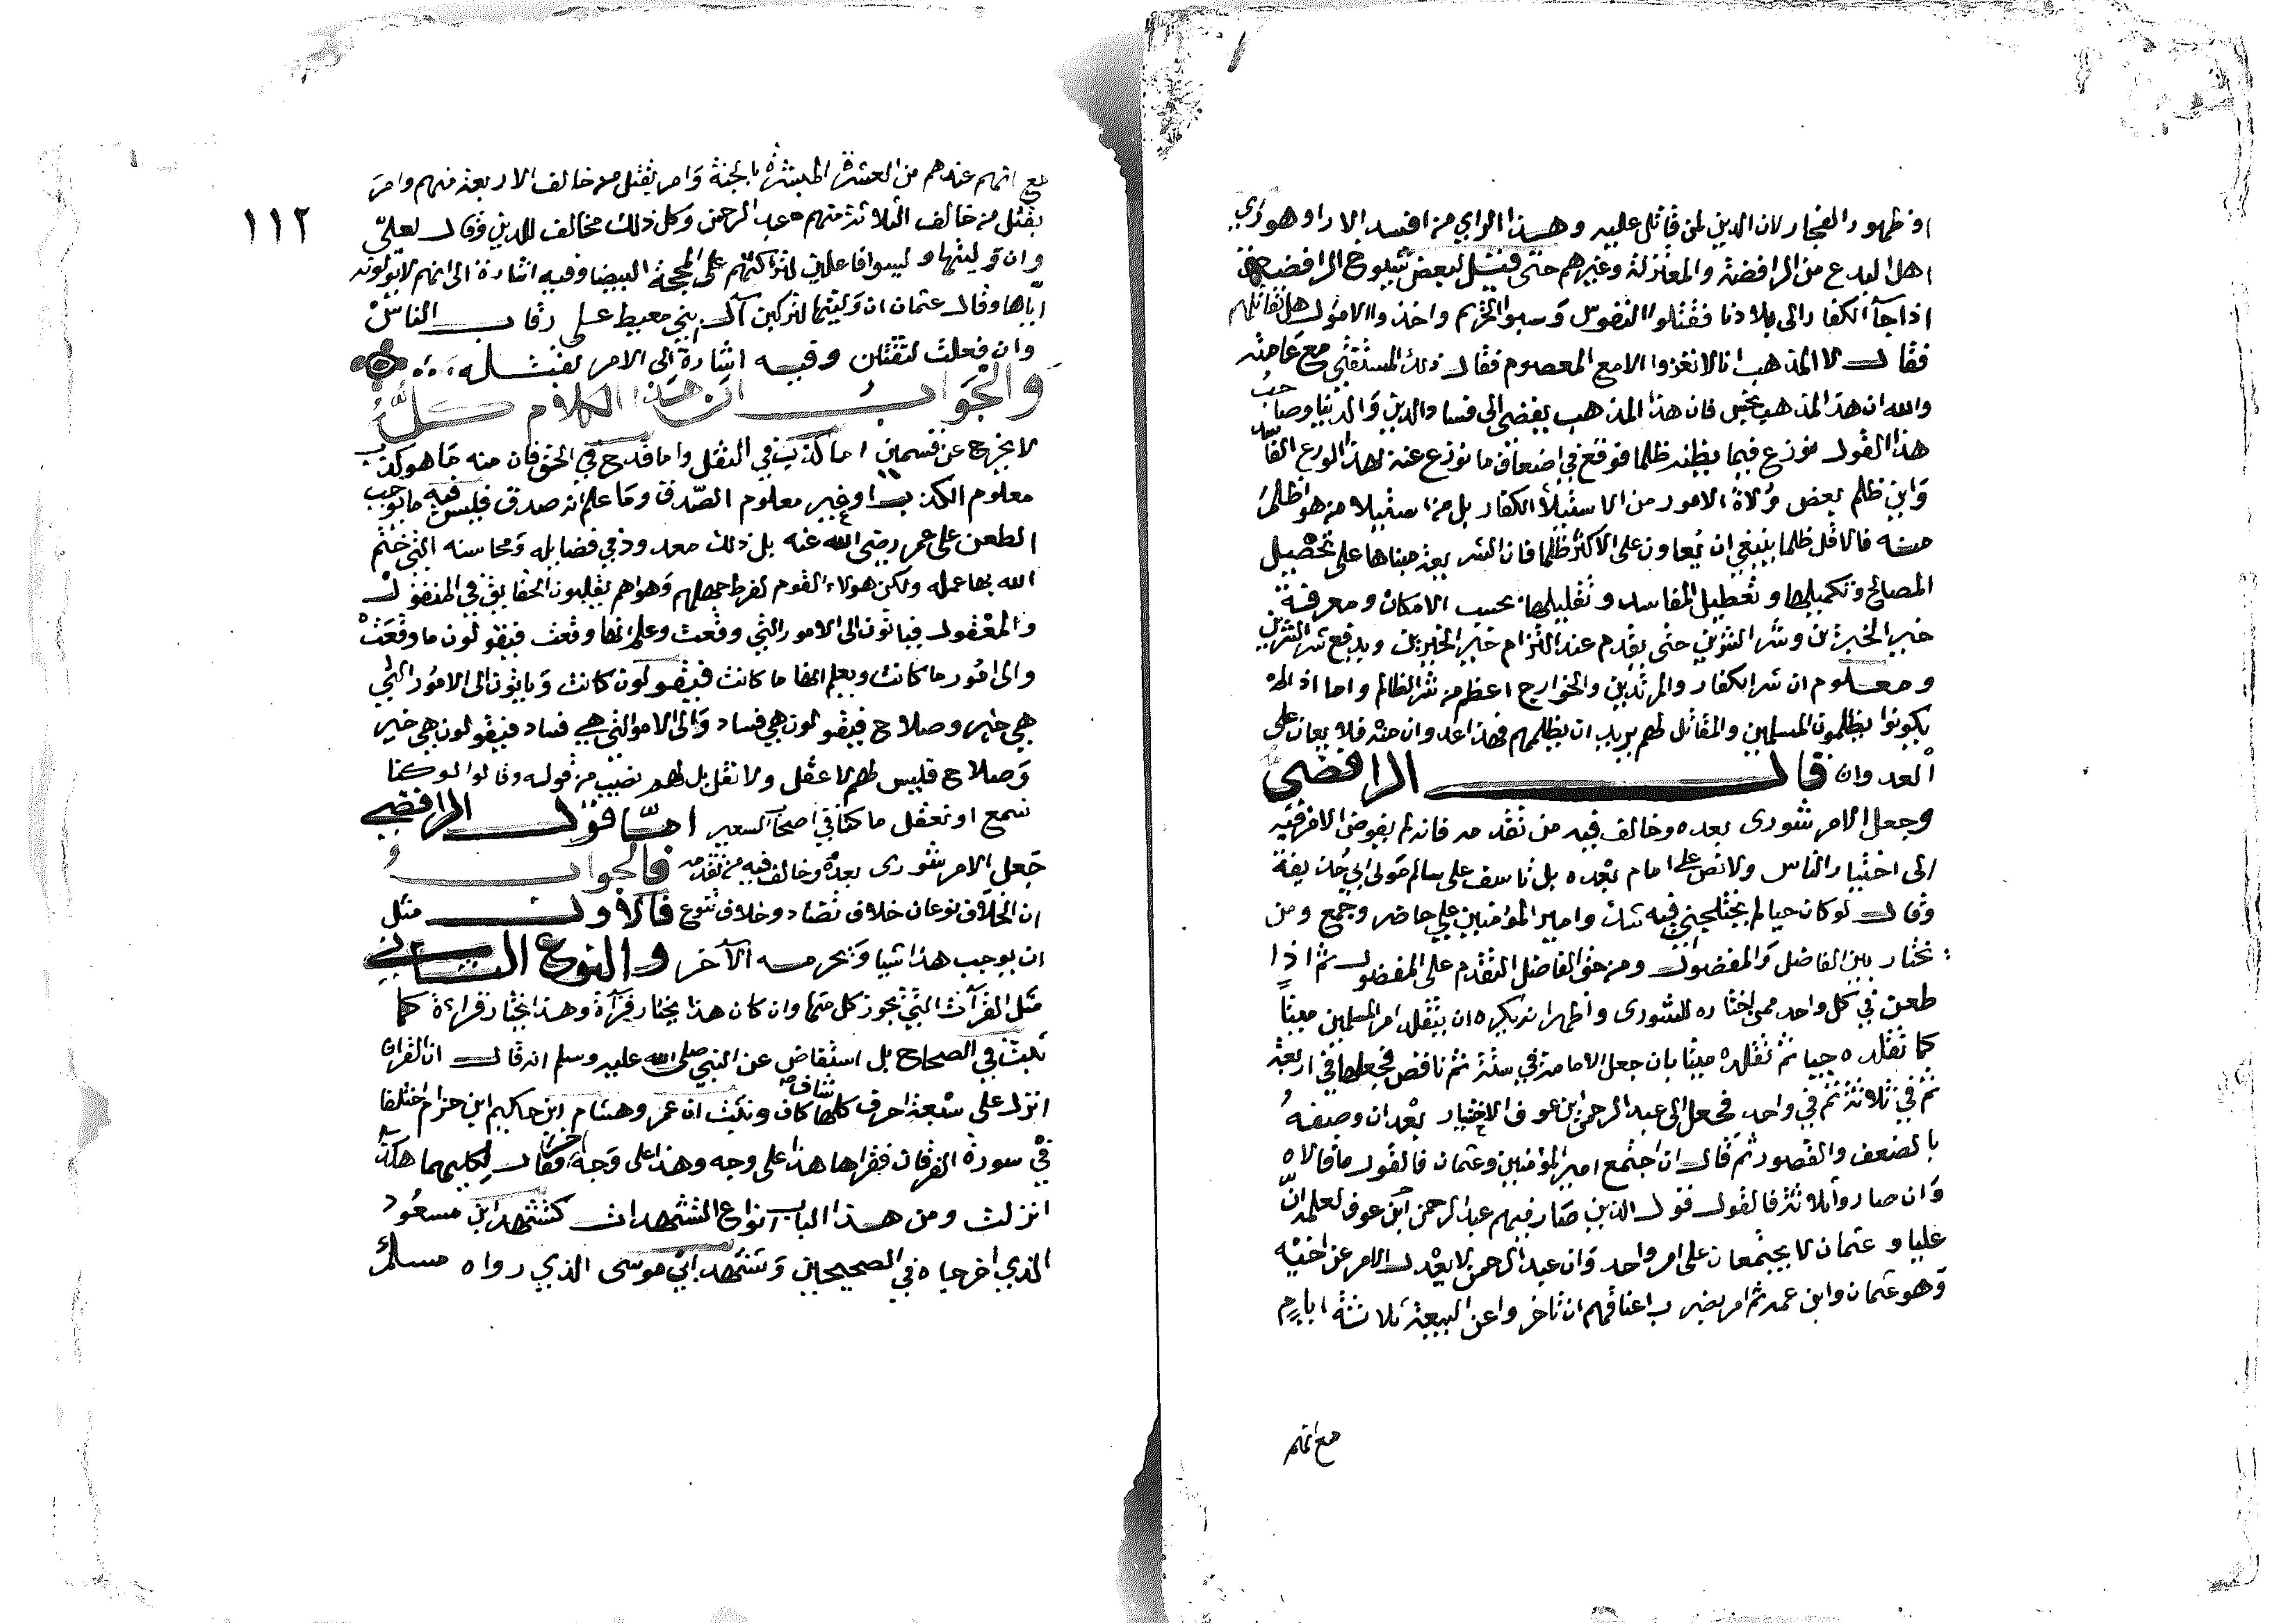 او ظهور الفجار لان الدين لمن قاتل عليه وهذا الراي من افسد الاراو هو راي
اهل البدع من الرافضة والمعتزلة وغيرهم حتى قيل لبعض شيوخ الرافضة
اذا جآ الكفار الى بلادنا فقتلوا النفوس وسبوا الحريم واخذوا الاموال هل نقاتلهم
فقال لا المذهب انا لا نغزوا الا مع المعصوم فقال ذلك المستفتي مع عاميته
والله ان هذا المذهب نجس فان هذا المذهب يفضي الى فساد الدين والدنيا وصاحب
هذا القول تورع فيما يظنه ظلما فوقع في اضعاف ما تورع عنه بهذا الورع الفاسد
واين ظلم بعض ولاة الامور من استيلآ الكفار بل من استيلا من هو اظلم
منه فالاقل ظلما ينبغي ان يعاون على الاكثر ظلما فان الشريعة مبناها على تحصيل
المصالح وتكميلها وتعطيل المفاسد وتقليلها بحسب الامكان ومعرفة
خير الخيرين وشر الشرين حتى يقدم عند التزاحم خير الخيرين ويدفع شر الشرين
ومعلوم ان شر الكفار والمرتدين والخوارج اعظم من شر الظالم واما اذا لم
يكونوا يظلمون المسلمين والمقاتل لهم يريد ان يظلمهم فهذا عدوان منه فلا يعان على
العدوان قال الرافضي
وجعل الامر شورى بعده وخالف فيه من تقدمه فانه لم يفوض الامر فيه
الى اختيار الناس ولا نص على امام بعده بل تاسف على سالم مولى ابي حذيفة
وقال لو كان حيا لم يختلجني فيه شك وامير المؤمنين علي حاضر وجمع ومن
يختار بين الفاضل والمفضول ومن حق الفاضل التقدم على المفضول ثم اذا
طعن في كل واحد ممن اختاره للشورى واظهر انه يكره ان يتقلد امر المسلمين ميتا
كما تقلده حيا ثم تقلده ميتا بان جعل الامامة في ستة ثم ناقض فجعلها في اربعة
ثم في ثلاثة ثم في واحد فجعل الى عبد الرحمن ابن عوف الاختيار بعد ان وصفه
بالضعف والقصور ثم قال ان اجتمع امير المؤمنين وعثمان فالقول ما قالاه
وان صاروا ثلاثة فالقول قول الذين صار فيهم عبد الرحمن ابن عوف لعلمه ان
عليا و عثمان لا يجتمعان على امر واحد وان عبد الرحمن لا يعدل الامر عن اخيه
وهو عثمان وابن عمه ثم امر بضرب اعناقهم ان تاخروا عن البيعة ثلاثة ايام
مع انهم
١١٢
مع انهم عندهم من العشرة المبشرة بالجنة وامر بقتل من خالف الاربعة منهم وامر
بقتل من خالف الثلاثة منهم عبد الرحمن وكل ذلك مخالف للدين وقال لعلي
وان وليتها وليسوا فاعلين لتركبنهم على المحجة البيضا وفيه اشارة الى انهم لا يولونه
اياها وقال عثمان ان وليتها لتركبن آل ابني معيط على رقاب الناس
وان فعلت لتقتلن وفيه اشارة الى الامر بقتله
والجواب ان هذا الكلام كله
لا يخرج عن قسمين اما كذب في النقل واما قدح في الحق فان منه ما هو كذب
معلوم الكذب او غير معلوم الصدق وما علم انه صدق فليس فيه ما يوجب
الطعن على عمر رضي الله عنه بل ذلك معدود في فضايله ومحاسنه التي ختم
الله بها عمله ولكن هولاء القوم لفرط جهلهم وهواهم يقلبون الحقايق في المنقول
والمعقول فياتون الى الامور التي وقعت وعلم انها وقعت فيقولون ما وقعت
والى امور ما كانت ويعلم انها ما كانت فيقولون كانت وياتون الى الامور التي
هي خير وصلاح فيقولون هي فساد والى الامور التي هي فساد فيقولون هي خير
وصلاح فليس لهم لا عقل ولا نقل بل لهم نصيب من قوله وقالوا لو كنا
نسمع او نعقل ما كنا في اصحاب السعير اما قول الرافضي
جعل الامر شورى بعده وخالف فيه من تقدمه فالجواب
ان الخلاف نوعان خلاف تضاد وخلاف تنوع فالاول مثل
ان يوجب هذا شيا ويحرمه الآخر والنوع الثاني
مثل القرآت التي يجوز كل منها وان كان هذا يختار قرآة وهذا يختار قراءة كما
ثبت في الصحاح بل استفاض عن النبي صلى الله عليه وسلم انه قال ان القران
انزل على سبعة احرف كلها شاف كاف وثبت ان عمر وهشام ابن حكيم ابن حزام اختلفا
في سورة الفرقان فقراها هذا على وجه وهذا على وجه اخر فقال لكليهما هكذا
انزلت ومن هذا الباب انواع التشهدات كتشهد ابن مسعود
الذي اخرجاه في الصحيحين وتشهد ابي موسى الذي رواه مسلم